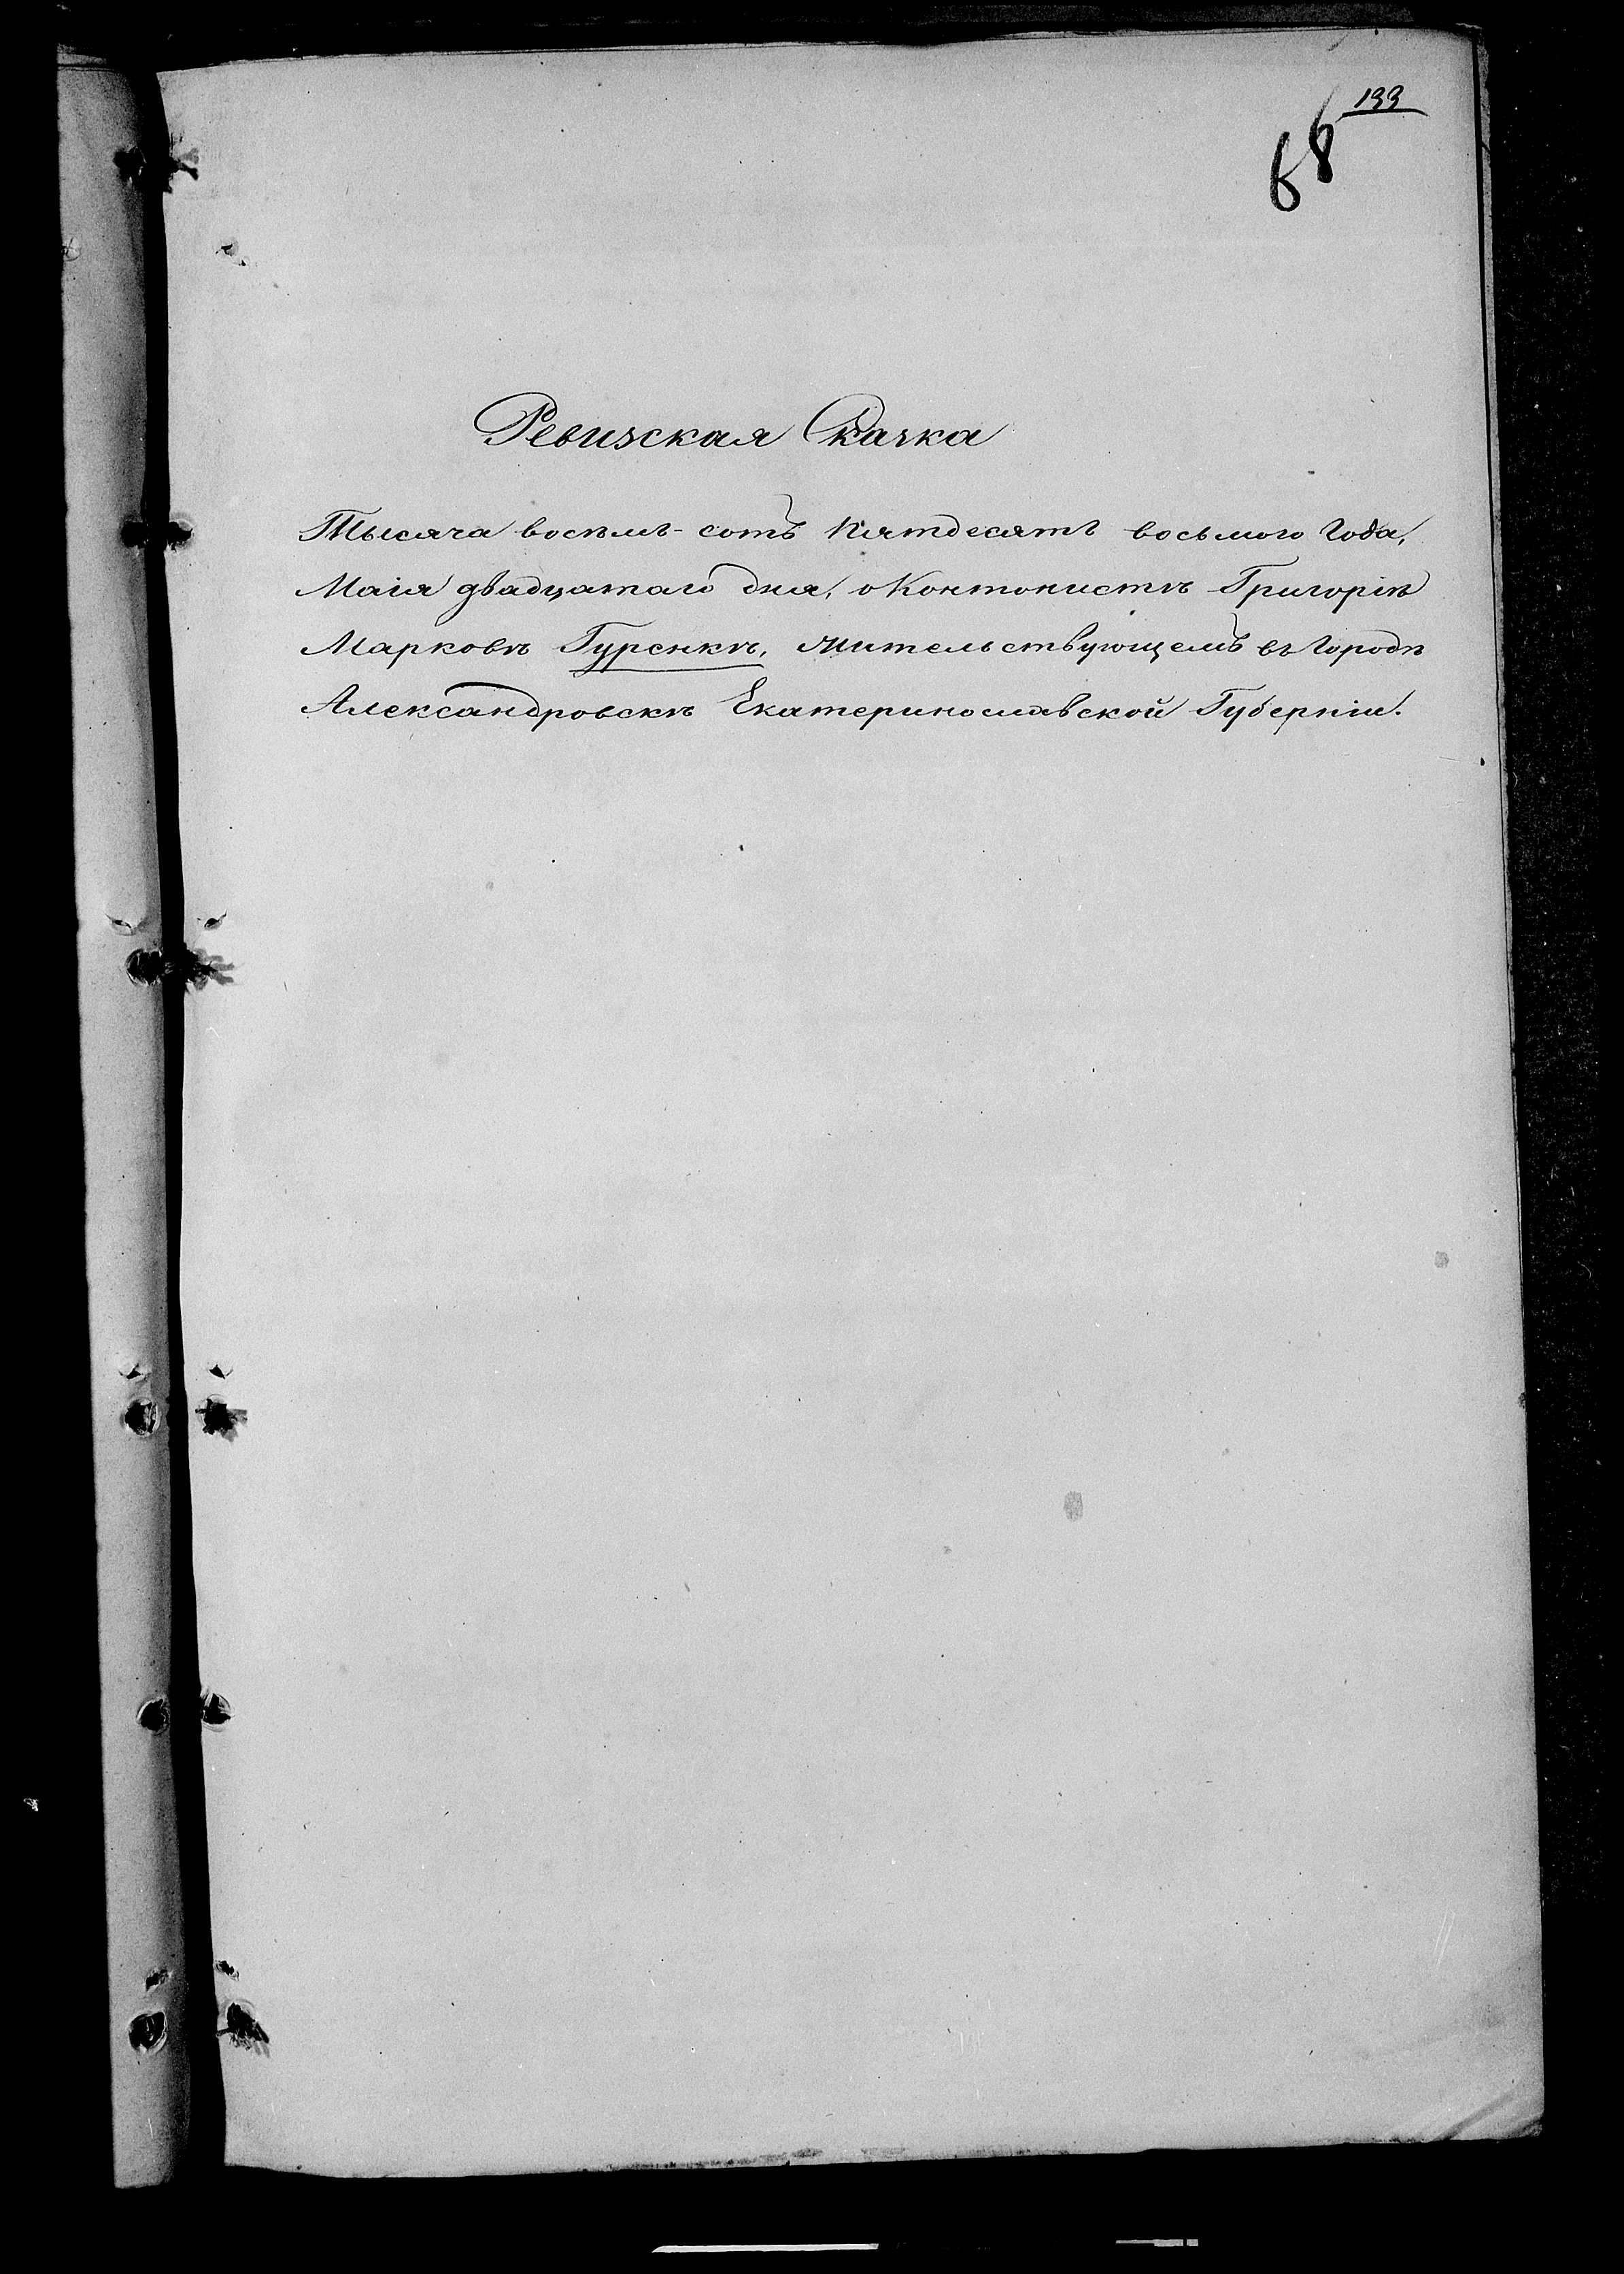 133
68
Ревизская Скаска
Тысяча восемь-сотъ Пятдесятъ восьмого Года,
Маія двадцатаго дня, о Контонистѣ Григоріѣ
Марковѣ Гуренкѣ, жительствующемъ въ Городѣ
Александровскѣ Екатеринославской Губерніи.